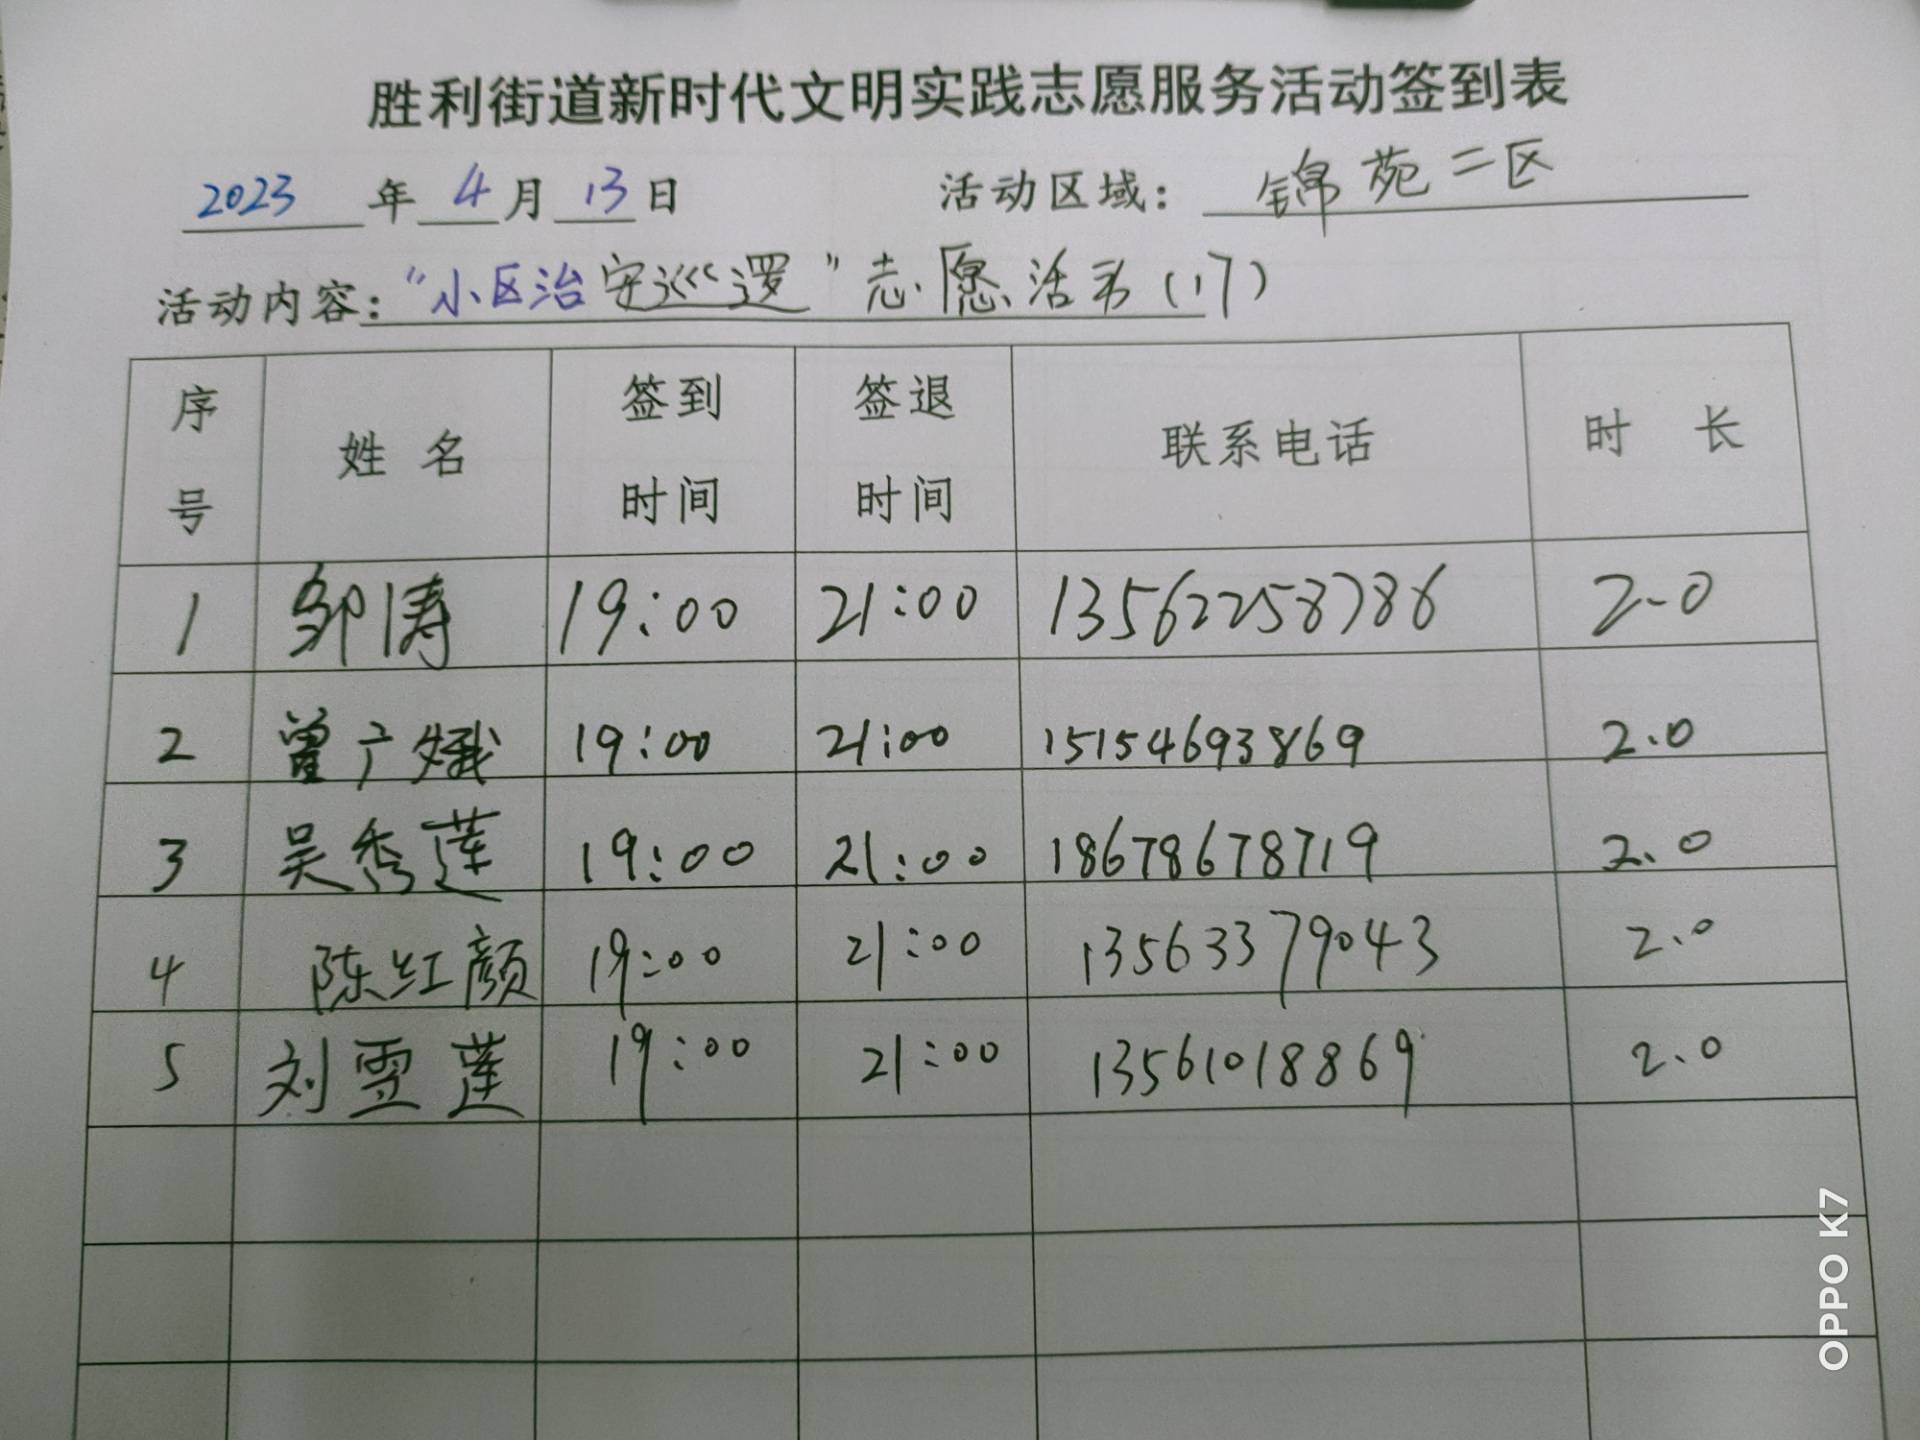 胜利街道新时代文明实践志愿服务活动签到表
2023 年 4 月 13 日 活动区域： 锦苑二区
活动内容：“小区治安巡逻”志愿活动（17）
序号 姓名 签到时间 签退时间 联系电话 时长
1 邹涛 19:00 21:00 13562258786 2.0
2 曾广娥 19:00 21:00 15154693869 2.0
3 吴秀莲 19:00 21:00 18678678719 2.0
4 陈红颜 19:00 21:00 13563379043 2.0
5 刘雪莲 19:00 21:00 13561018869 2.0
OPPO K7